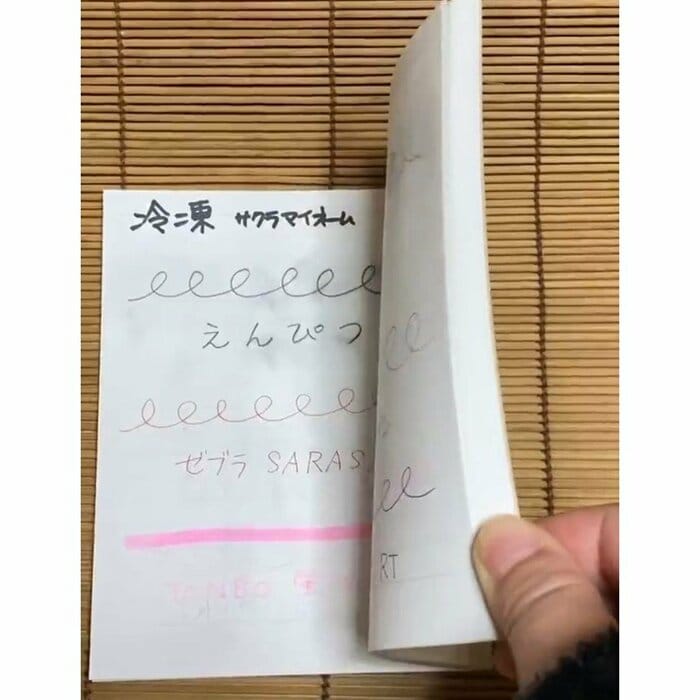 冷凍 サクラマイネーム
えんぴつ
ゼブラ SARAS
RT